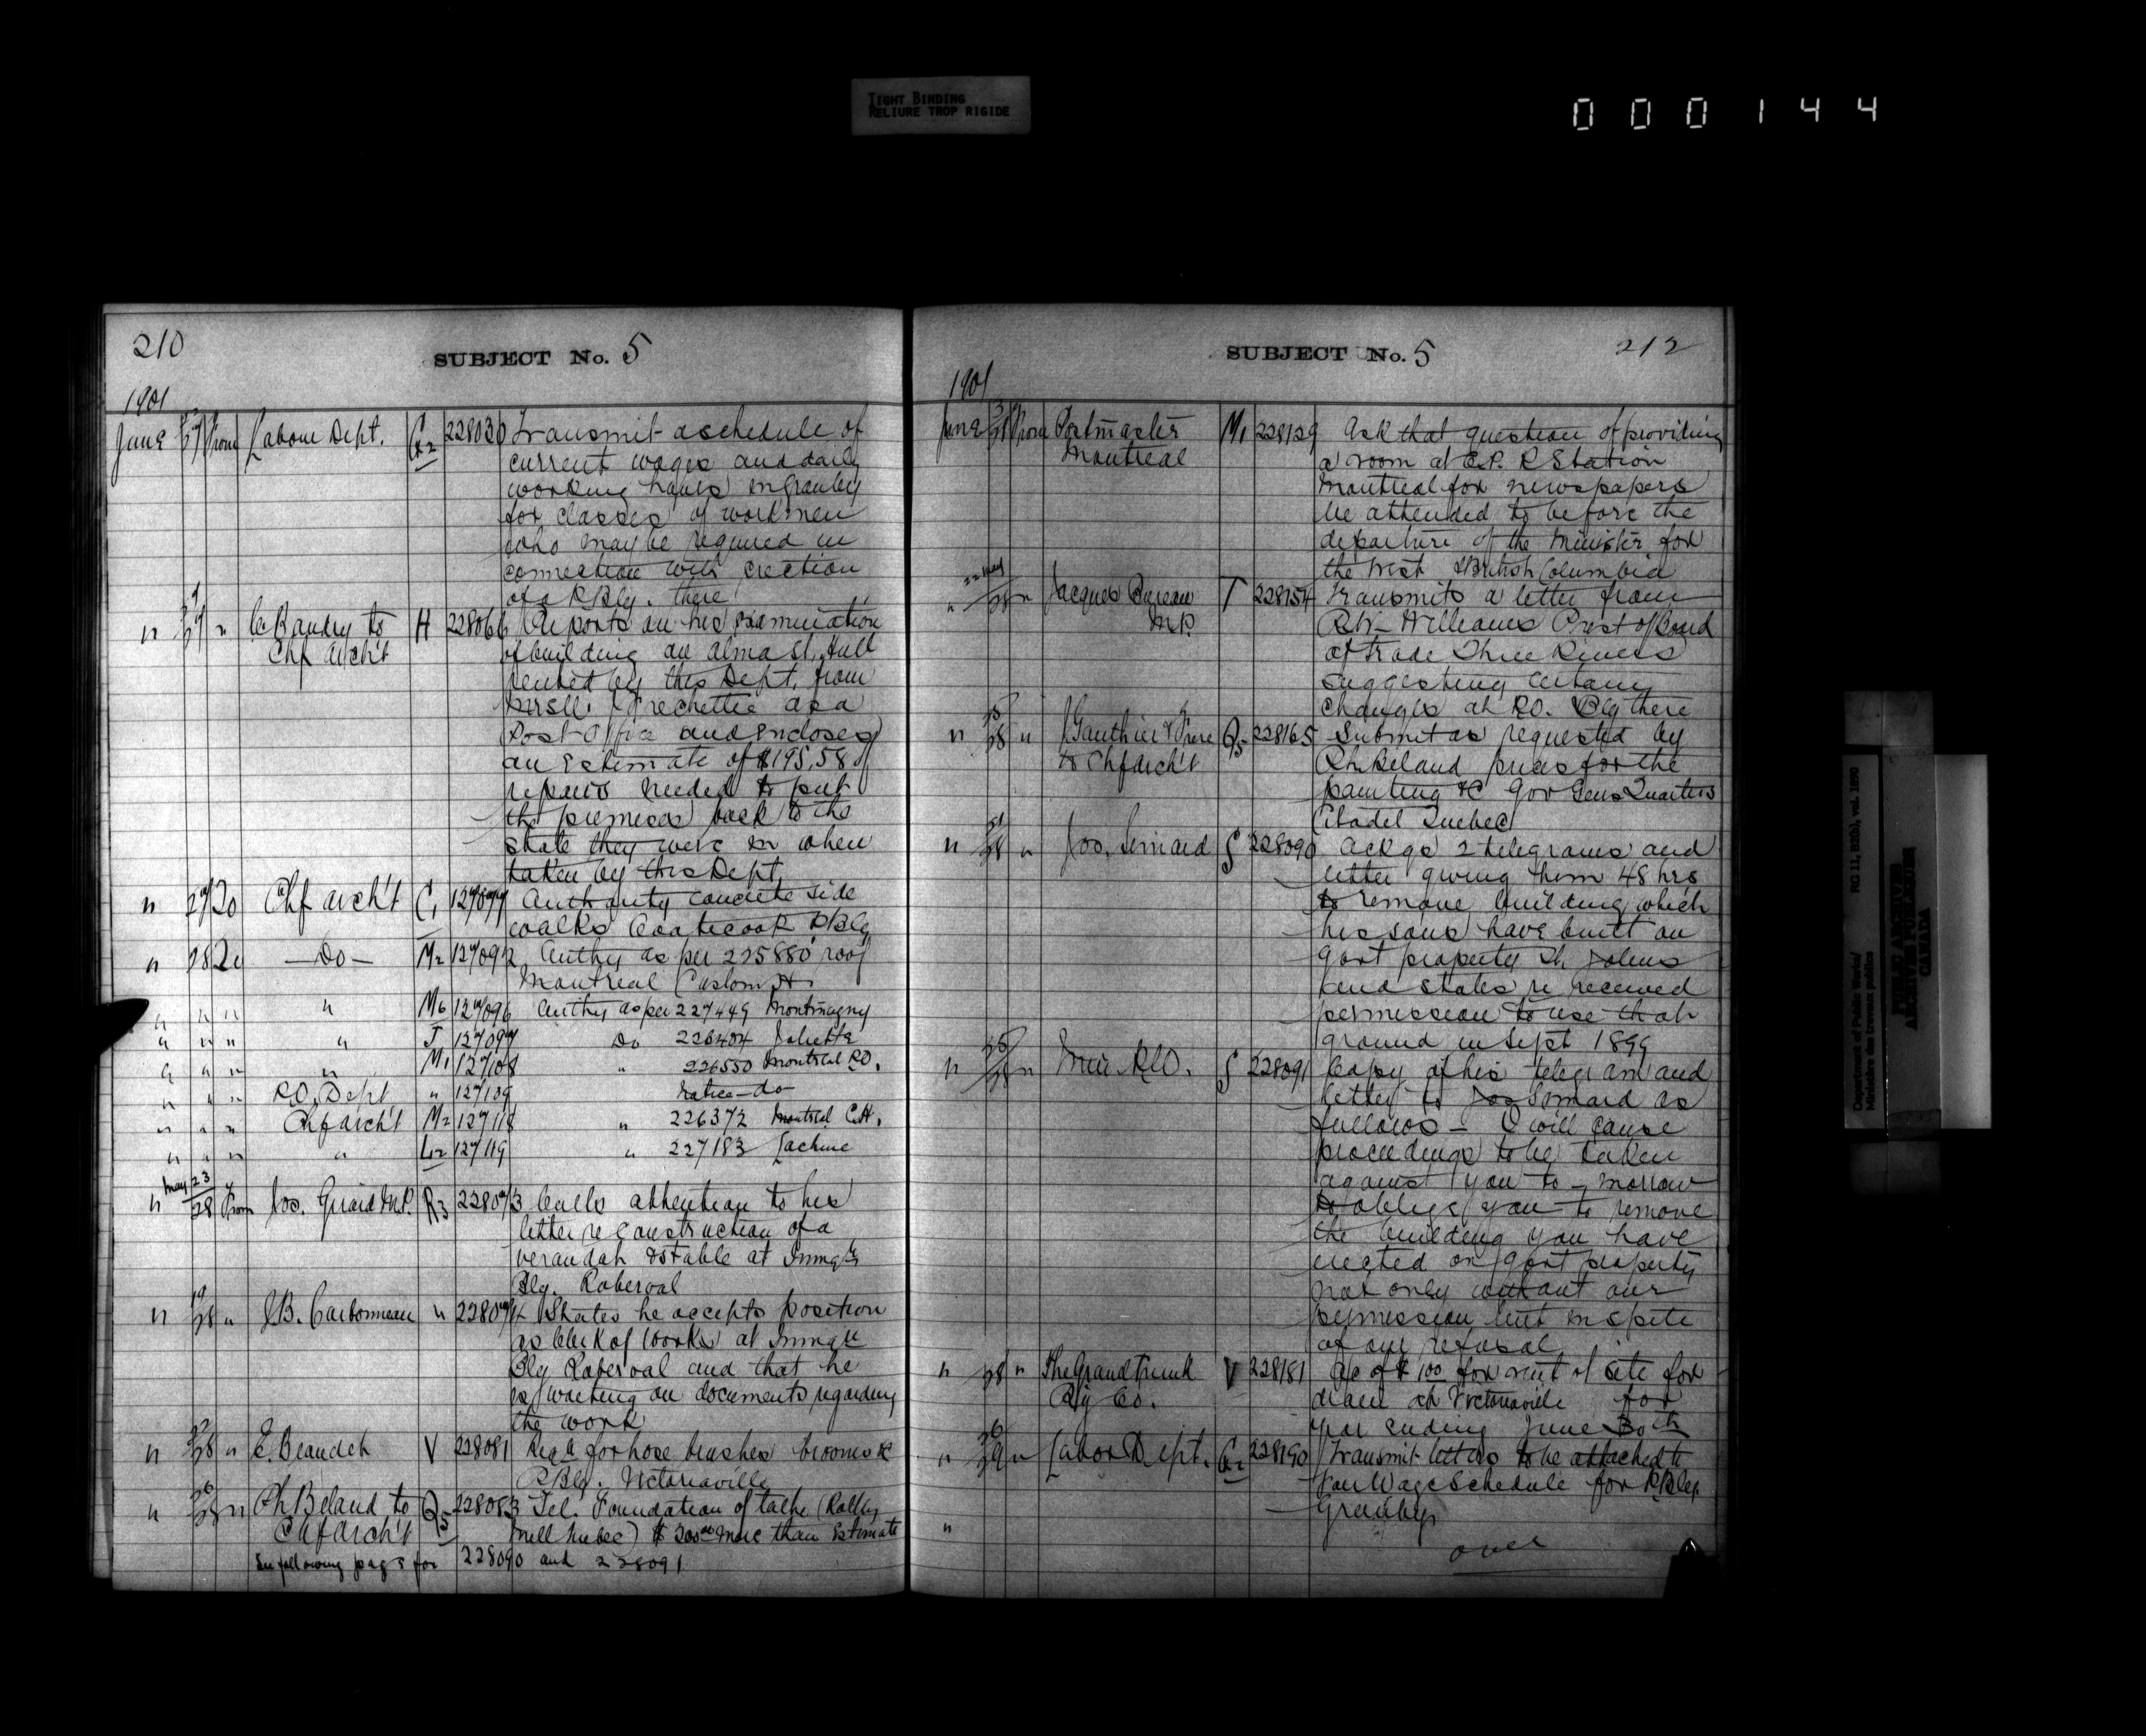 TIGHT BINDING
RELIURE TROP RIGIDE
000144
210
SUBJECT No. 5
1901
June 27 From Labour Dept. G2 228030 Transmit a schedule of
current wages and daily
working hours in Granby
for classes of workmen
who may be required in
connection with erection
of a P Blg. there
" 27 " to H 228066 Reports on his examination
Chf arch't of building on Alma St. Hull
rented by this Dept. from
Frechette as a
Post Office and encloses
an Estimate of $195.58 of
repairs needed to put
the premises back to the
state they were in when
taken by this Dept.
" 27 20 Chf arch't C1 127077 Authority concrete side
walks Coaticook P Blg
" 28 20 — Do — M2 127092 Authy as per 225880 roof
Montreal Custom H.
" " " " M6 127096 Authy as per 227449 Montmagny
" " " " J 127097 Do 226404 Joliette
" " " " M1 127108 " 226550 Montreal P.O.
" " " P.O. Dept. " 127109 Notice — do —
" " " Chf arch't M2 127118 " 226372 Montreal C.H.
" " " " L2 127119 " 227183 Lachine
May 23
" 28 From Jos. Girard M.P. R3 228073 Calls attention to his
letter re construction of a
verandah & stable at Immgtn
Blg. Roberval
" 19/28 " J.B. Carbonneau " 228074 States he accepts position
as Clerk of Works at Immgn
Blg Roberval and that he
is waiting on documents regarding
the work
" 27/28 " E. Beaudet V 228081 Reqn for hose brushes brooms &c
P Blg. Victoriaville
" 26/28 " Ph Beland to Q5 228083 Tel. Foundation of lathe (Rolling
Chf Arch't Mill Quebec) $300.00 more than Estimate
See following page for 228090 and 228091
SUBJECT No. 5
212
1901
June 28 From Postmaster M1 228129 Ask that question of providing
Montreal a room at C.P.R Station
Montreal for newspapers
be attended to before the
departure of the Minister for
the West & British Columbia
22 May
" 28 " Jacques Bureau T 228154 Transmits a letter from
M.P. Williams Prest of Board
of Trade Three Rivers
suggesting certain
changes at P.O. Blg there
" 25/28 " J Gauthier & Frere Q5 228165 Submit as requested by
to Chf arch't Ph Beland prices for the
painting &c Gov Gens Quarters
Citadel Quebec
" 28 " Jos. Simard S 228090 Ackgs 2 telegrams and
letter giving them 48 hrs
to remove building which
his sons have built on
Govt property St. Johns
and states he received
permission to use that
ground in Sept 1899
" 25/28 " S 228091 Copy of his telegram and
letter to Jos Simard as
follows — I will cause
proceedings to be taken
against you to-morrow
to oblige you to remove
the building you have
erected on Govt property
not only without our
permission but in spite
of our refusal
" 28 " The Grand Trunk V 228181 a/c of $1.00 for rent of site for
Ry Co. drain at Victoriaville for
year ending June 30th
" 26/29 " Labor Dept. G2 228190 Transmit letters to be attached to
Fair Wage Schedule for P. Blg.
" Granby
over
Department of Public Works/ RG 11, B2(b), vol. 1890
Ministère des travaux publics
PUBLIC ARCHIVES
ARCHIVES PUBLIQUES
CANADA